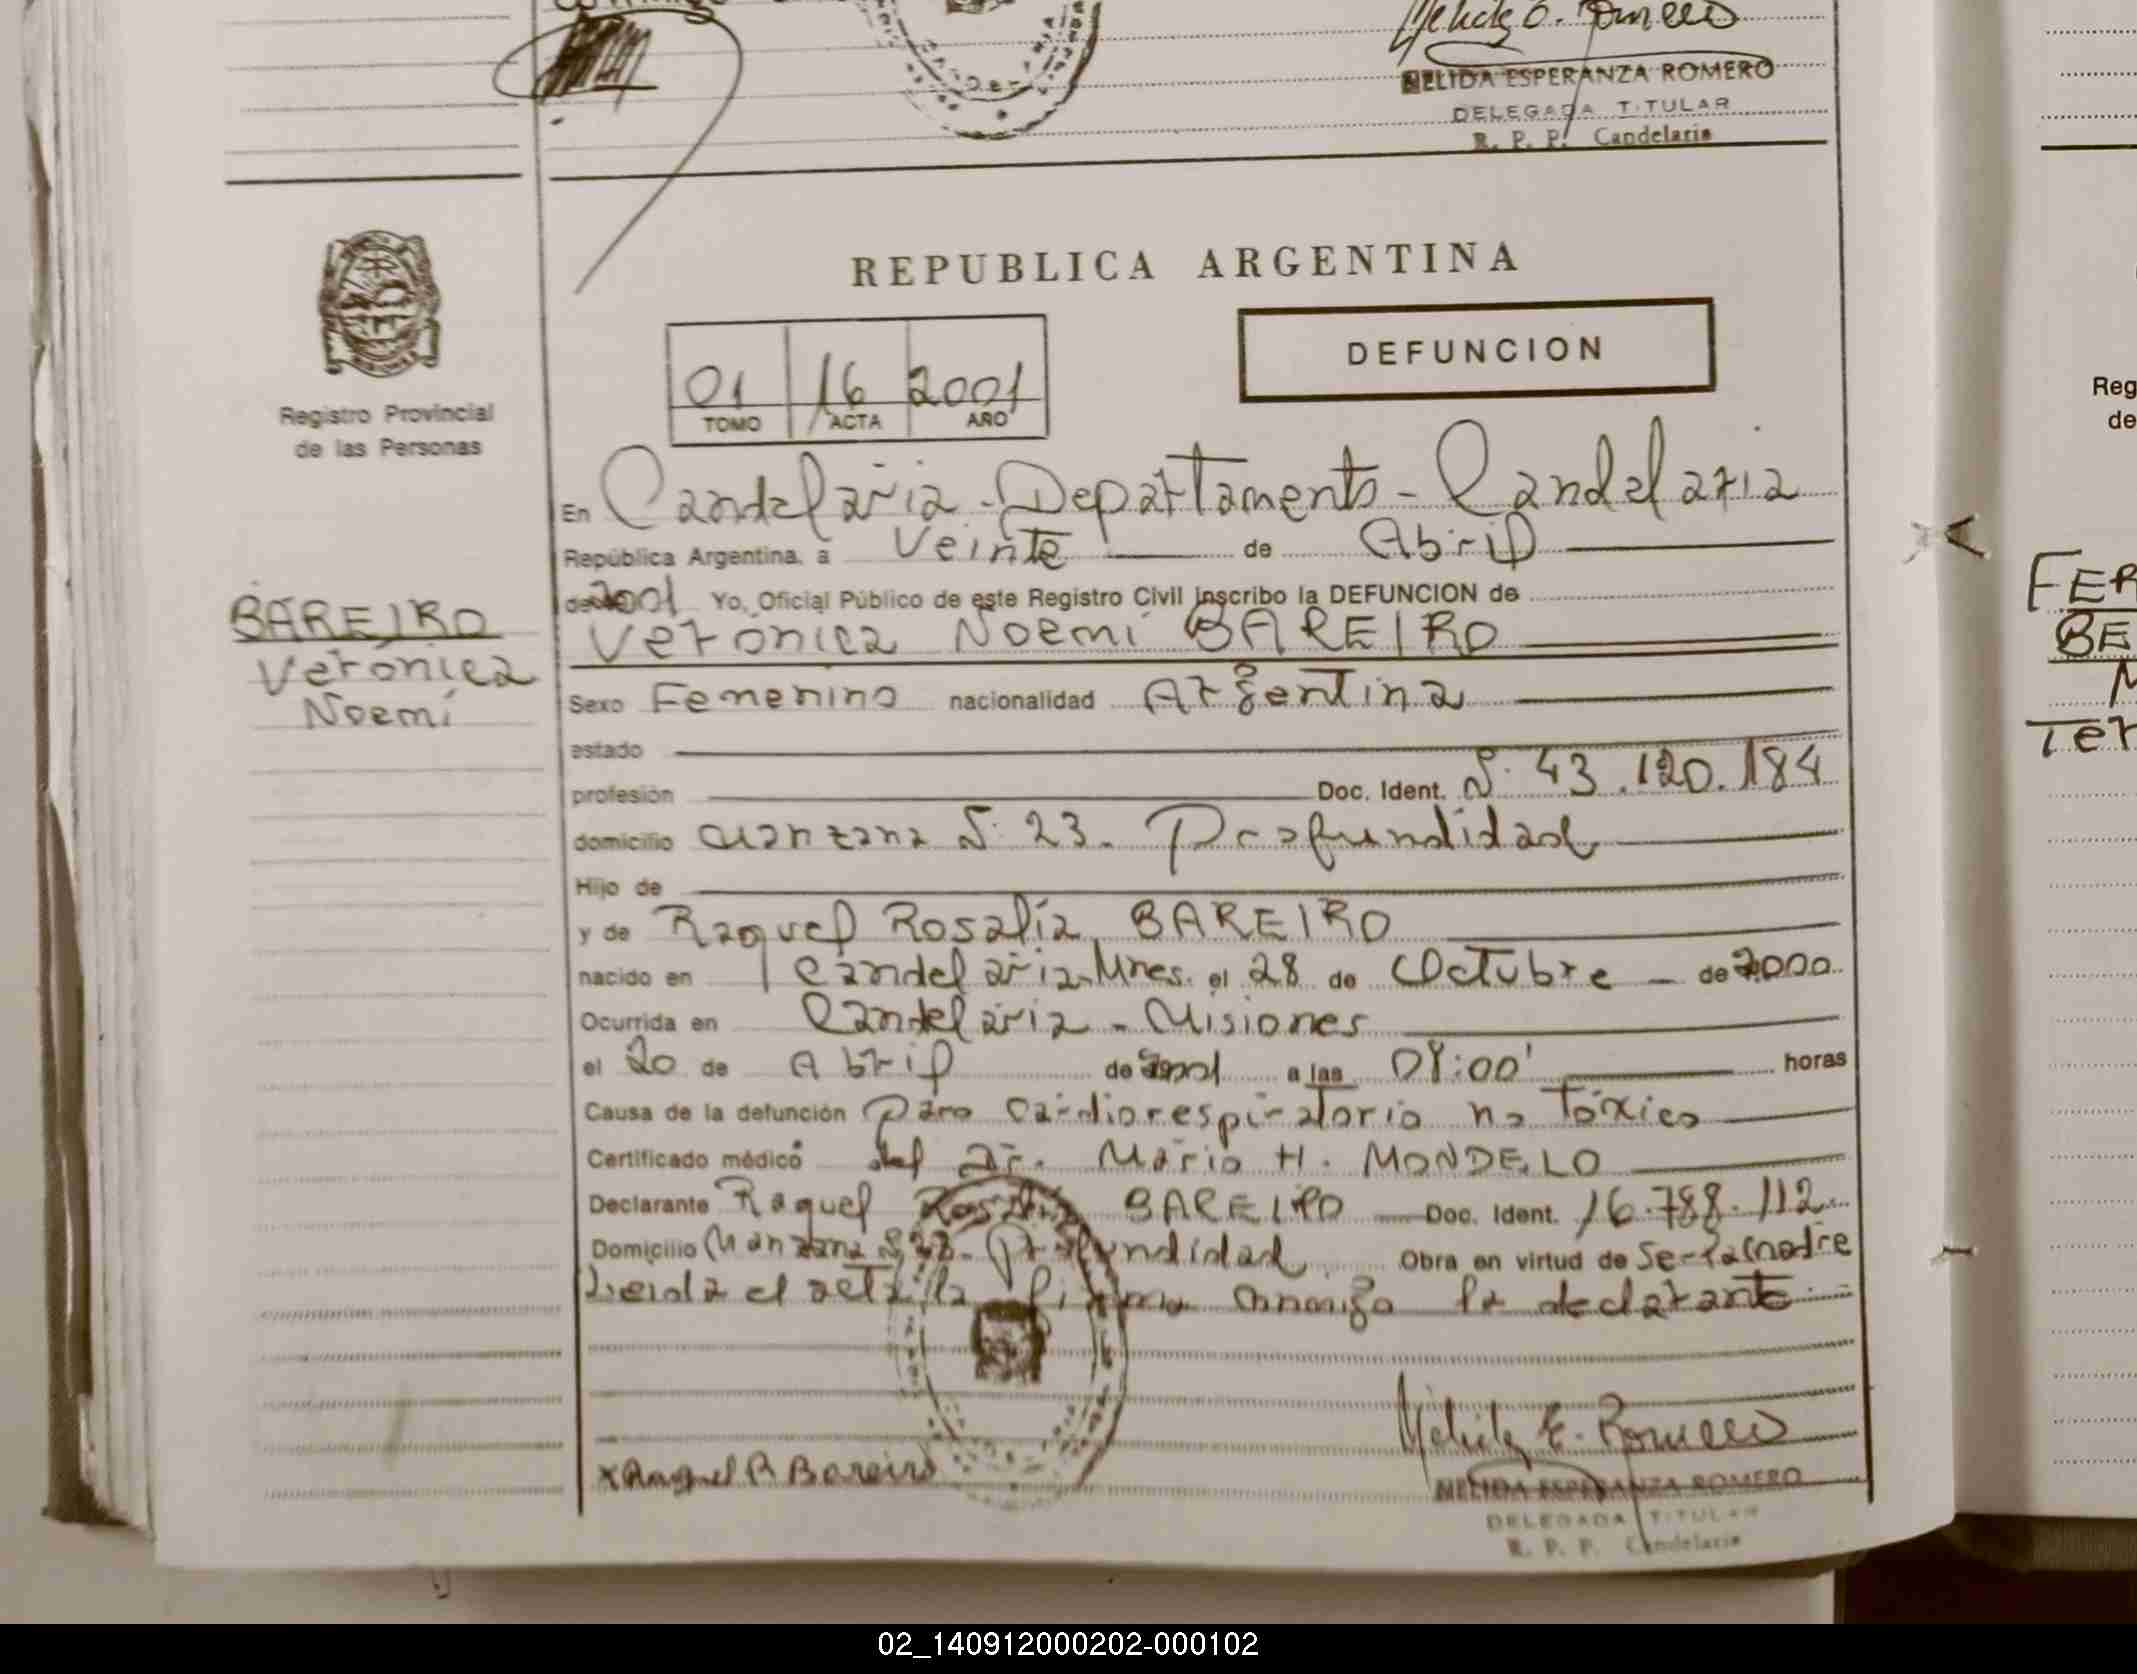 NELIDA ESPERANZA ROMERO
DELEGADA TITULAR
R. P. P. Candelaria
Registro Provincial
de las Personas
REPUBLICA ARGENTINA
DEFUNCION
01 16 2001
TOMO ACTA AÑO
En Candelaria - Departamento - Candelaria
República Argentina, a Veinte de Abril
de 2001 Yo, Oficial Público de este Registro Civil inscribo la DEFUNCION de
Verónica Noemí BAREIRO
BAREIRO
Verónica
Noemí
Sexo Femenino nacionalidad Argentina
estado
profesión Doc. Ident. N° 43.120.184
domicilio Manzana N° 23 - Profundidad
Hijo de
y de Raquel Rosalía BAREIRO
nacido en Candelaria - Mnes. el 28 de Octubre de 2000
Ocurrida en Candelaria - Misiones
el 20 de Abril de 2001 a las 08:00' horas
Causa de la defunción Paro cardiorespiratorio no Tóxico
Certificado médico del Dr. Mario H. MONDELO
Declarante Raquel Rosalía BAREIRO Doc. Ident. 16.788.112
Domicilio Manzana N° 23 - Profundidad Obra en virtud de Ser la madre
Leida el acta la firma conmigo la declarante
x Raquel R Bareiro
Nelida E. Romero
NELIDA ESPERANZA ROMERO
DELEGADA TITULAR
R. P. P. Candelaria
Reg
de
FER
BE
M
Ter
02_140912000202-000102